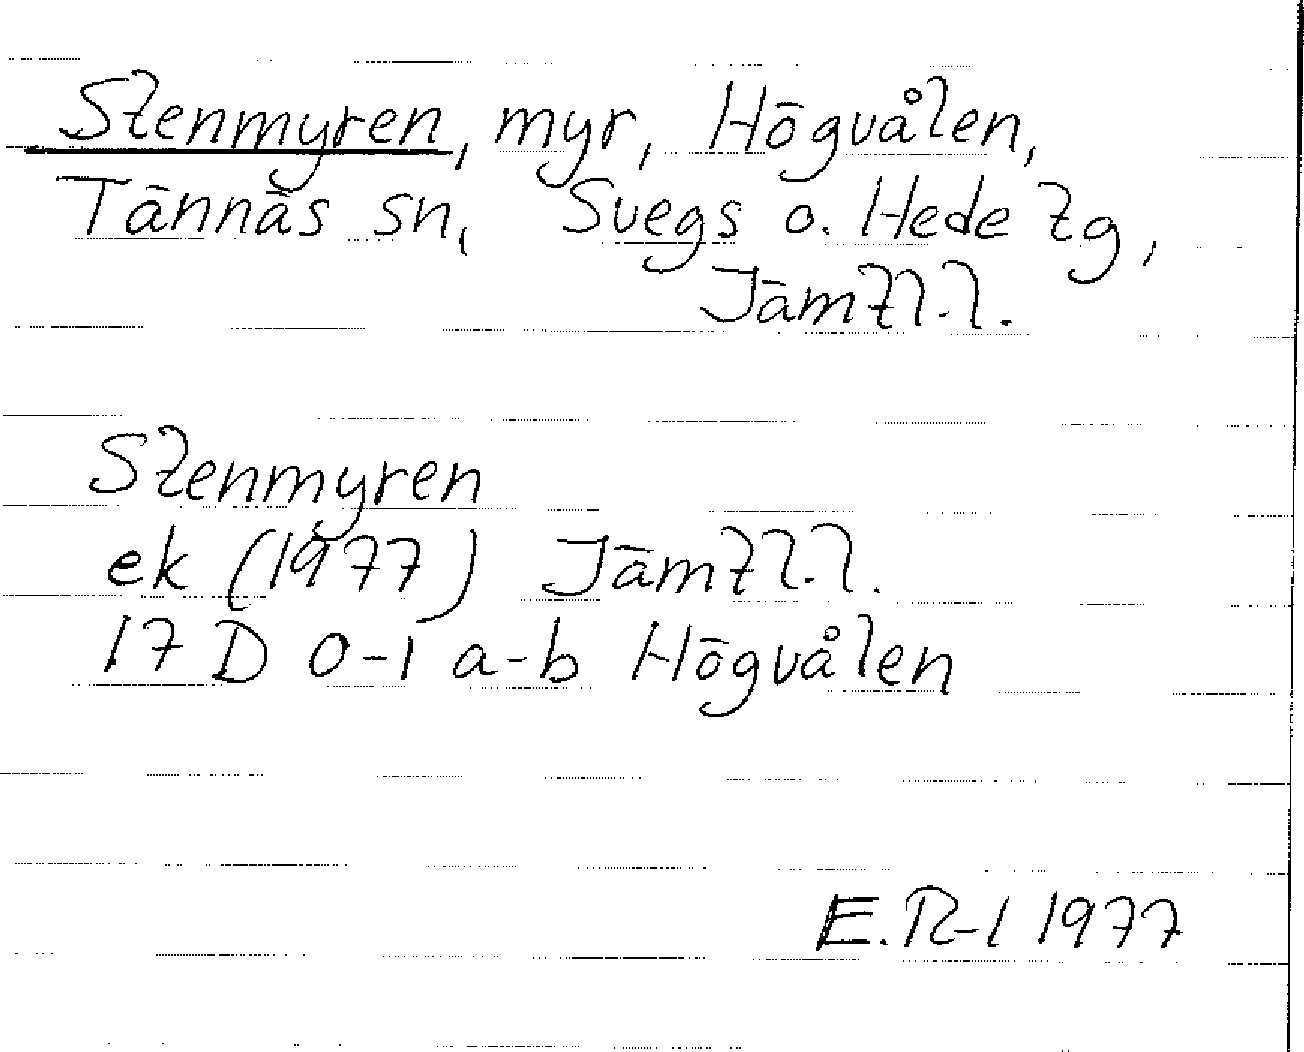 Stenmyren, myr, Högvålen,
Tännäs sn, Svegs o. Hede tg,
Jämtl.l.
Stenmyren
ek (1977) Jämtl.l.
17 D 0-1 a-b Högvålen
E.R-l 1977